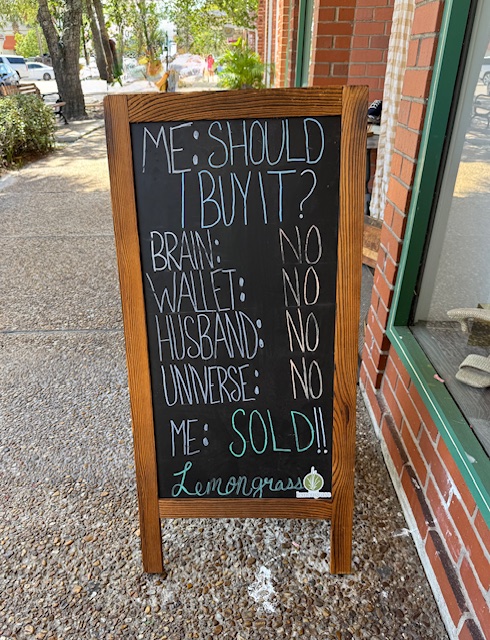 ME: SHOULD
I BUY IT?
BRAIN: NO
WALLET: NO
HUSBAND: NO
UNIVERSE: NO
ME: SOLD!!
Lemongrass